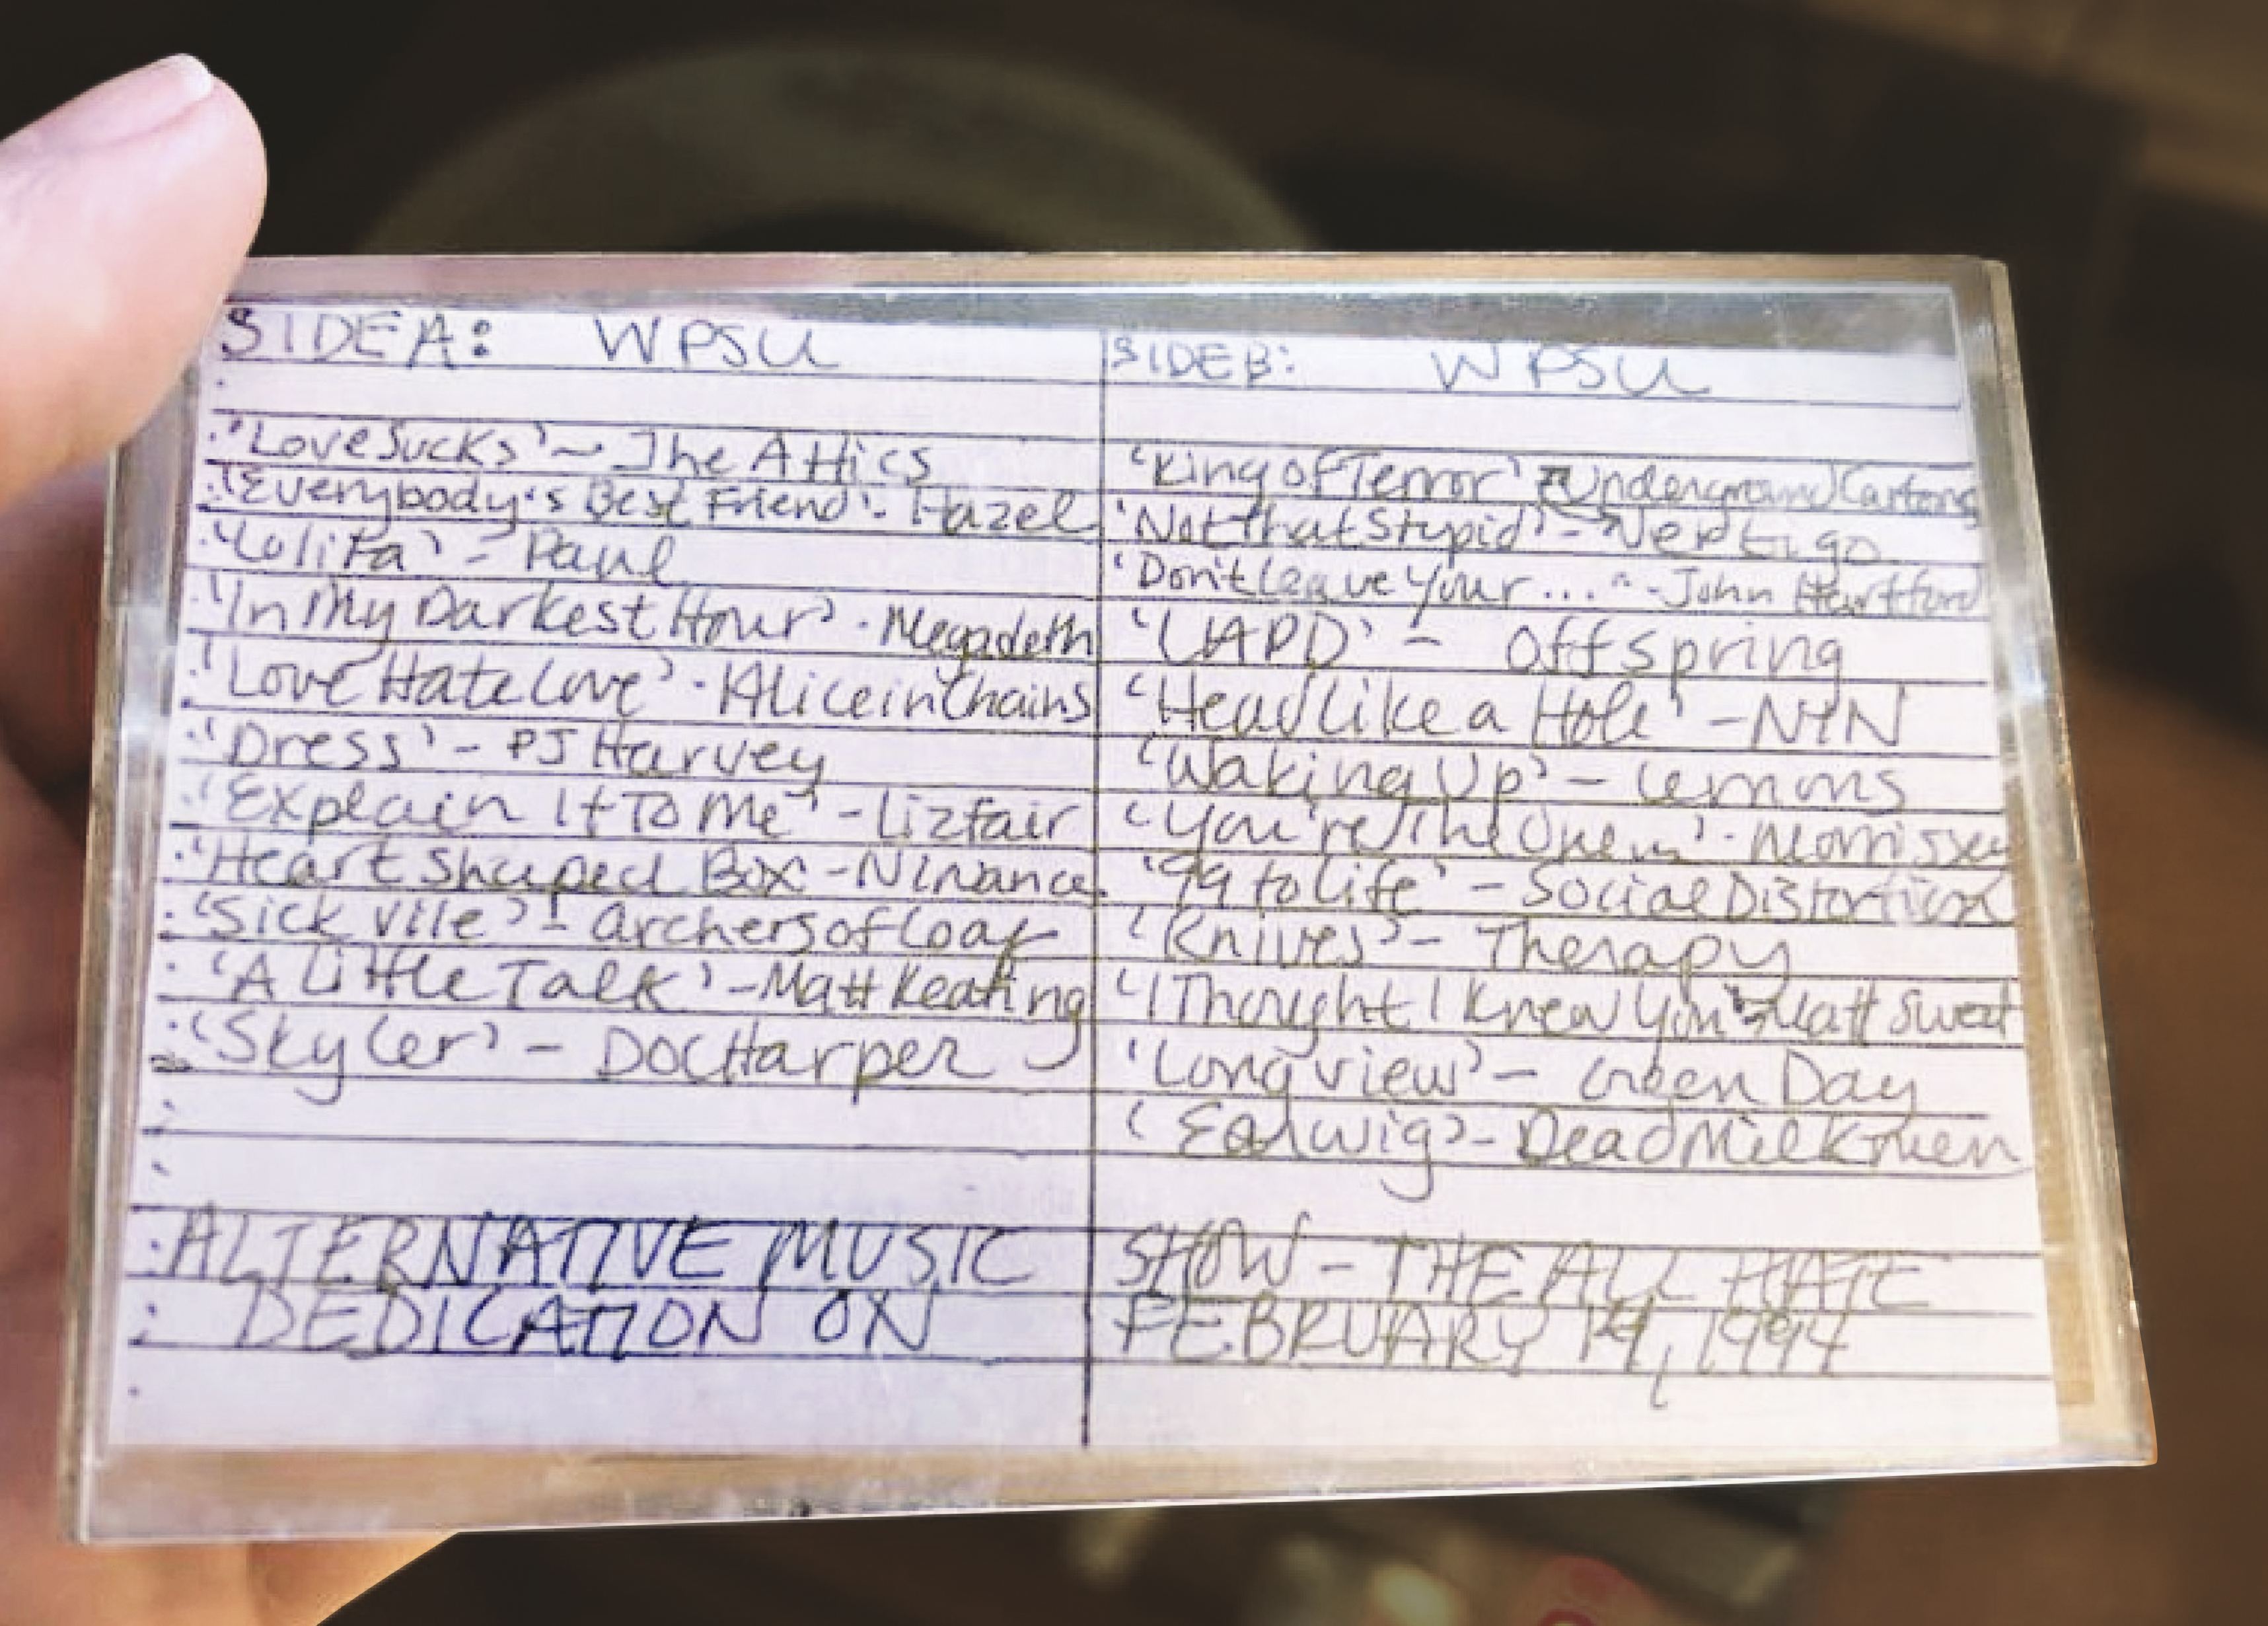 SIDE A: WPSU
'Love Sucks' ~ The Attics
'Everybody's Best Friend' - Hazel
'Lolita' - Paul
'In My Darkest Hour' - Megadeth
'Love Hate Love' - Alice in Chains
'Dress' - PJ Harvey
'Explain It To Me' - Lizfair
'Heart Shaped Box' - Nirvana
'Sick Vile' - Archers of Loaf
'A Little Talk' - Matt Keating
'Skyler' - Doc Harper
ALTERNATIVE MUSIC
DEDICATION ON
SIDE B: WPSU
'King of Terror' Underground Cartoons
'Not that Stupid' - Vertigo
'Don't leave Your ..." - John Hartford
'LAPD' - Offspring
'Head like a Hole' - NIN
'Waking Up' - Lemons
'You're The One' - Morrissey
'99 to Life' - Social Distortion
'Knives' - Therapy
'I Thought I Knew You' - Matt Sweet
'Longview' - Green Day
'Earwig' - Dead Milkmen
SHOW - THE ALL HATE
FEBRUARY 14, 1994